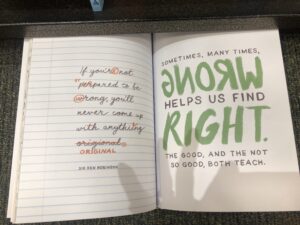 If you're not
prepared to be
wrong, you'll
never come up
with anything
origional
ORIGINAL
SIR KEN ROBINSON
SOMETIMES, MANY TIMES,
WRONG
HELPS US FIND
RIGHT.
THE GOOD, AND THE NOT
SO GOOD, BOTH TEACH.